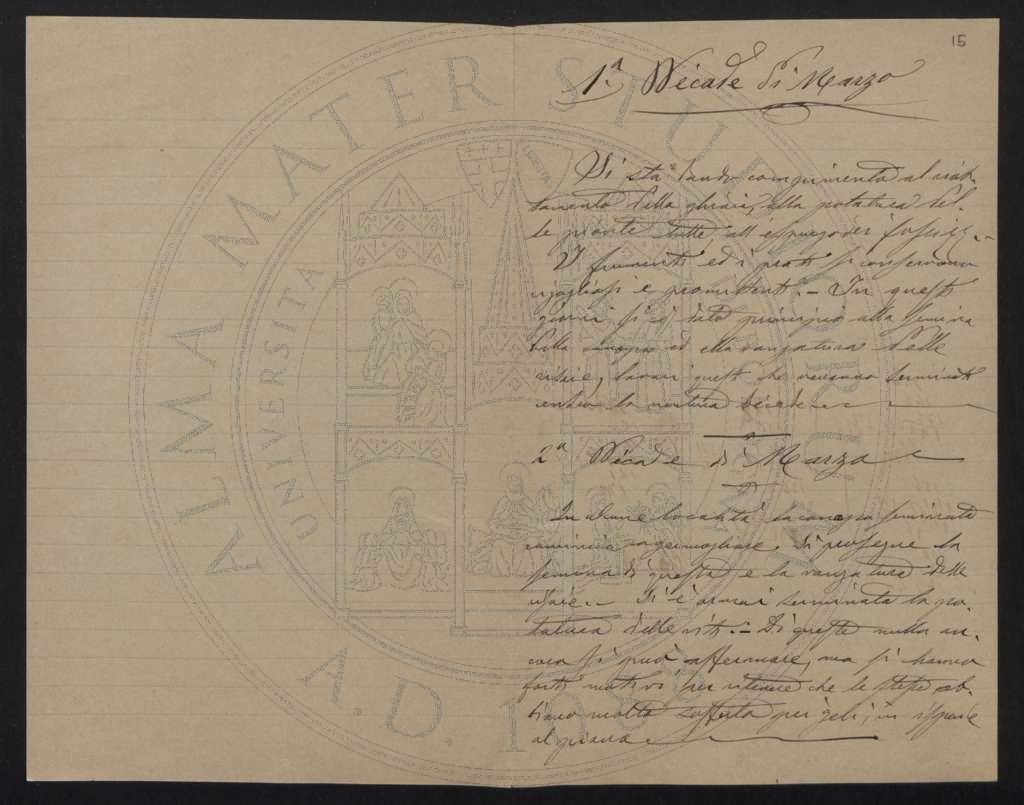 15
1.a Décade di Marzo
Si sta dando compimento al riat-
tamento delle ghiaie, alla potatura del-
le piante tutte, all'espurgo dei fossi.
I frumenti ed i prati si conservano
rigogliosi e promittenti. — In questi
giorni si è dato principio alla semina
della canapa ed alla vangatura delle
risaie, lavori questi che verranno terminati
entro la ventura decade.
2.a Décade di Marzo
In alcune località la canapa seminata
comincia a germogliare. Si prosegue la
semina di questa e la vangatura delle
risaie. — Si è ormai terminata la po-
tatura delle viti. — Di queste nulla an-
cora si può affermare, ma si hanno
forti motivi per ritenere che le stesse ab-
biano molto sofferto pei geli, in ispecie
al piano.
ALMA MATER STUDIORUM
A.D. 1088
UNIVERSITA